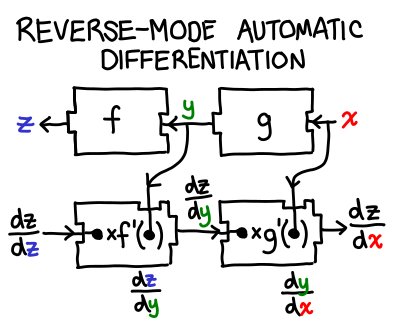 REVERSE-MODE AUTOMATIC
DIFFERENTIATION
z f y g x
dz/dz ×f'( ) dz/dy ×g'( ) dz/dx
dz/dy dy/dx